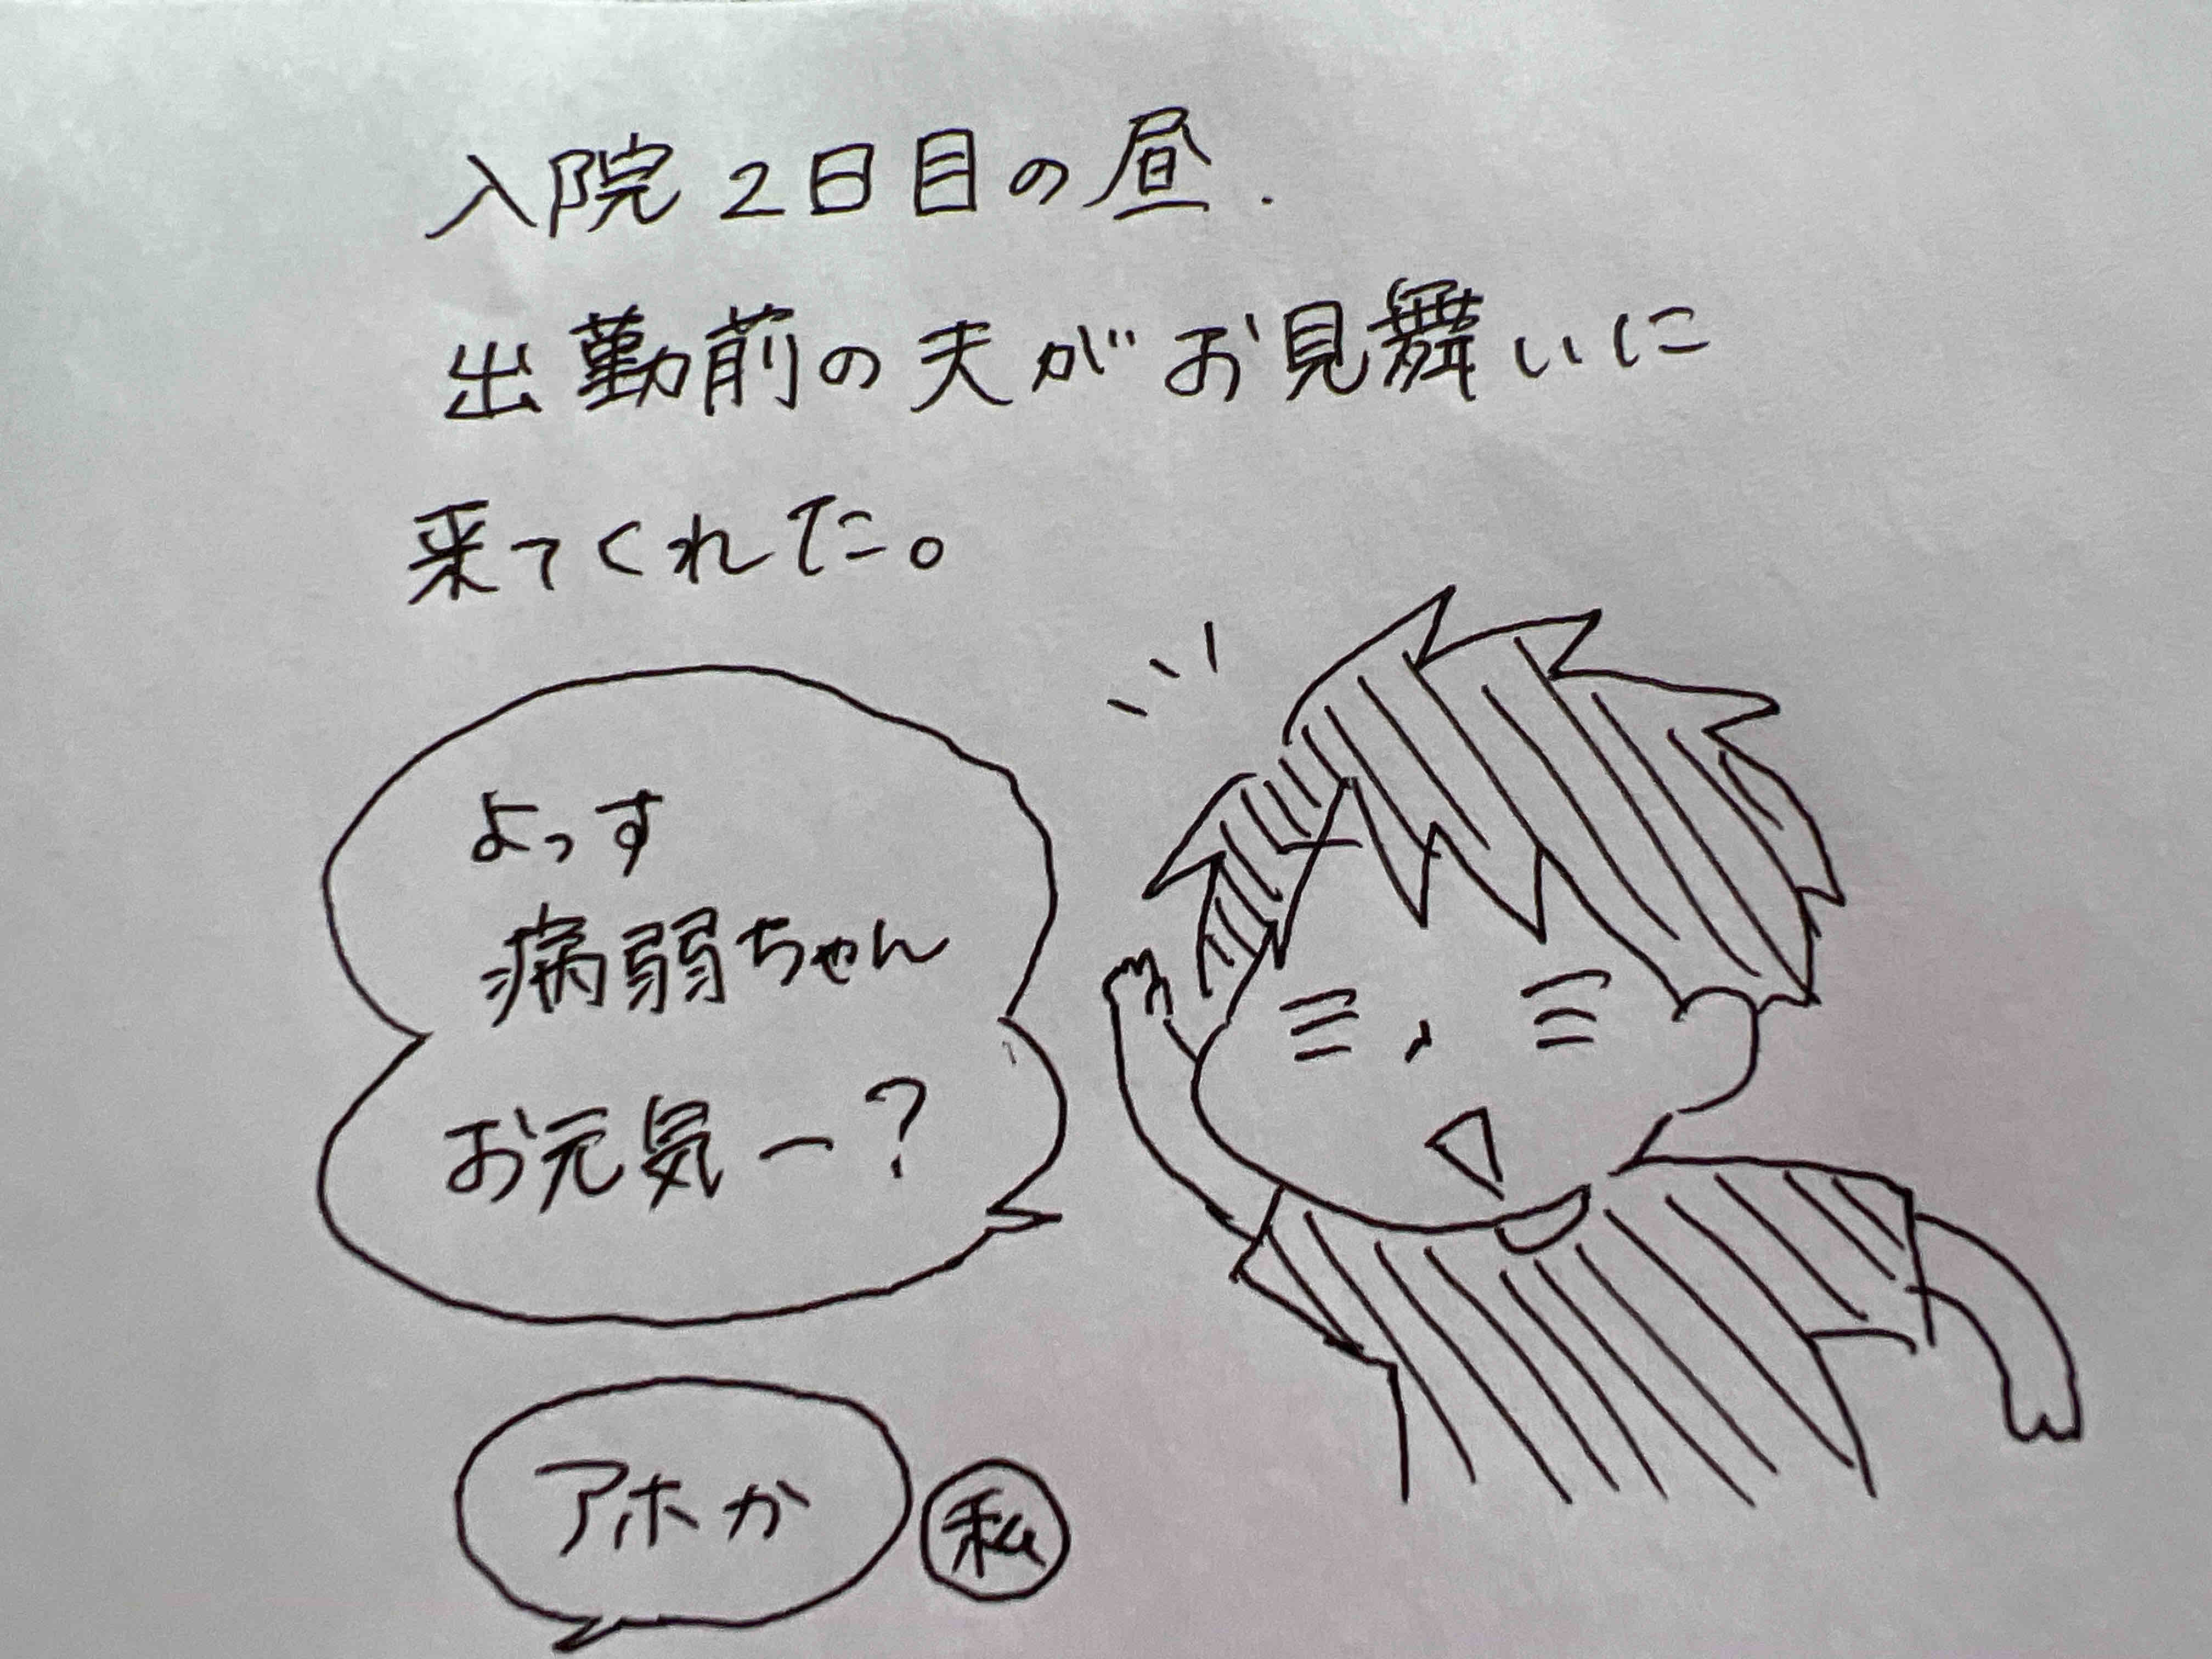 入院2日目の昼.
出勤前の夫がお見舞いに
来てくれた。
よっす
病弱ちゃん
お元気ー?
アホか
私